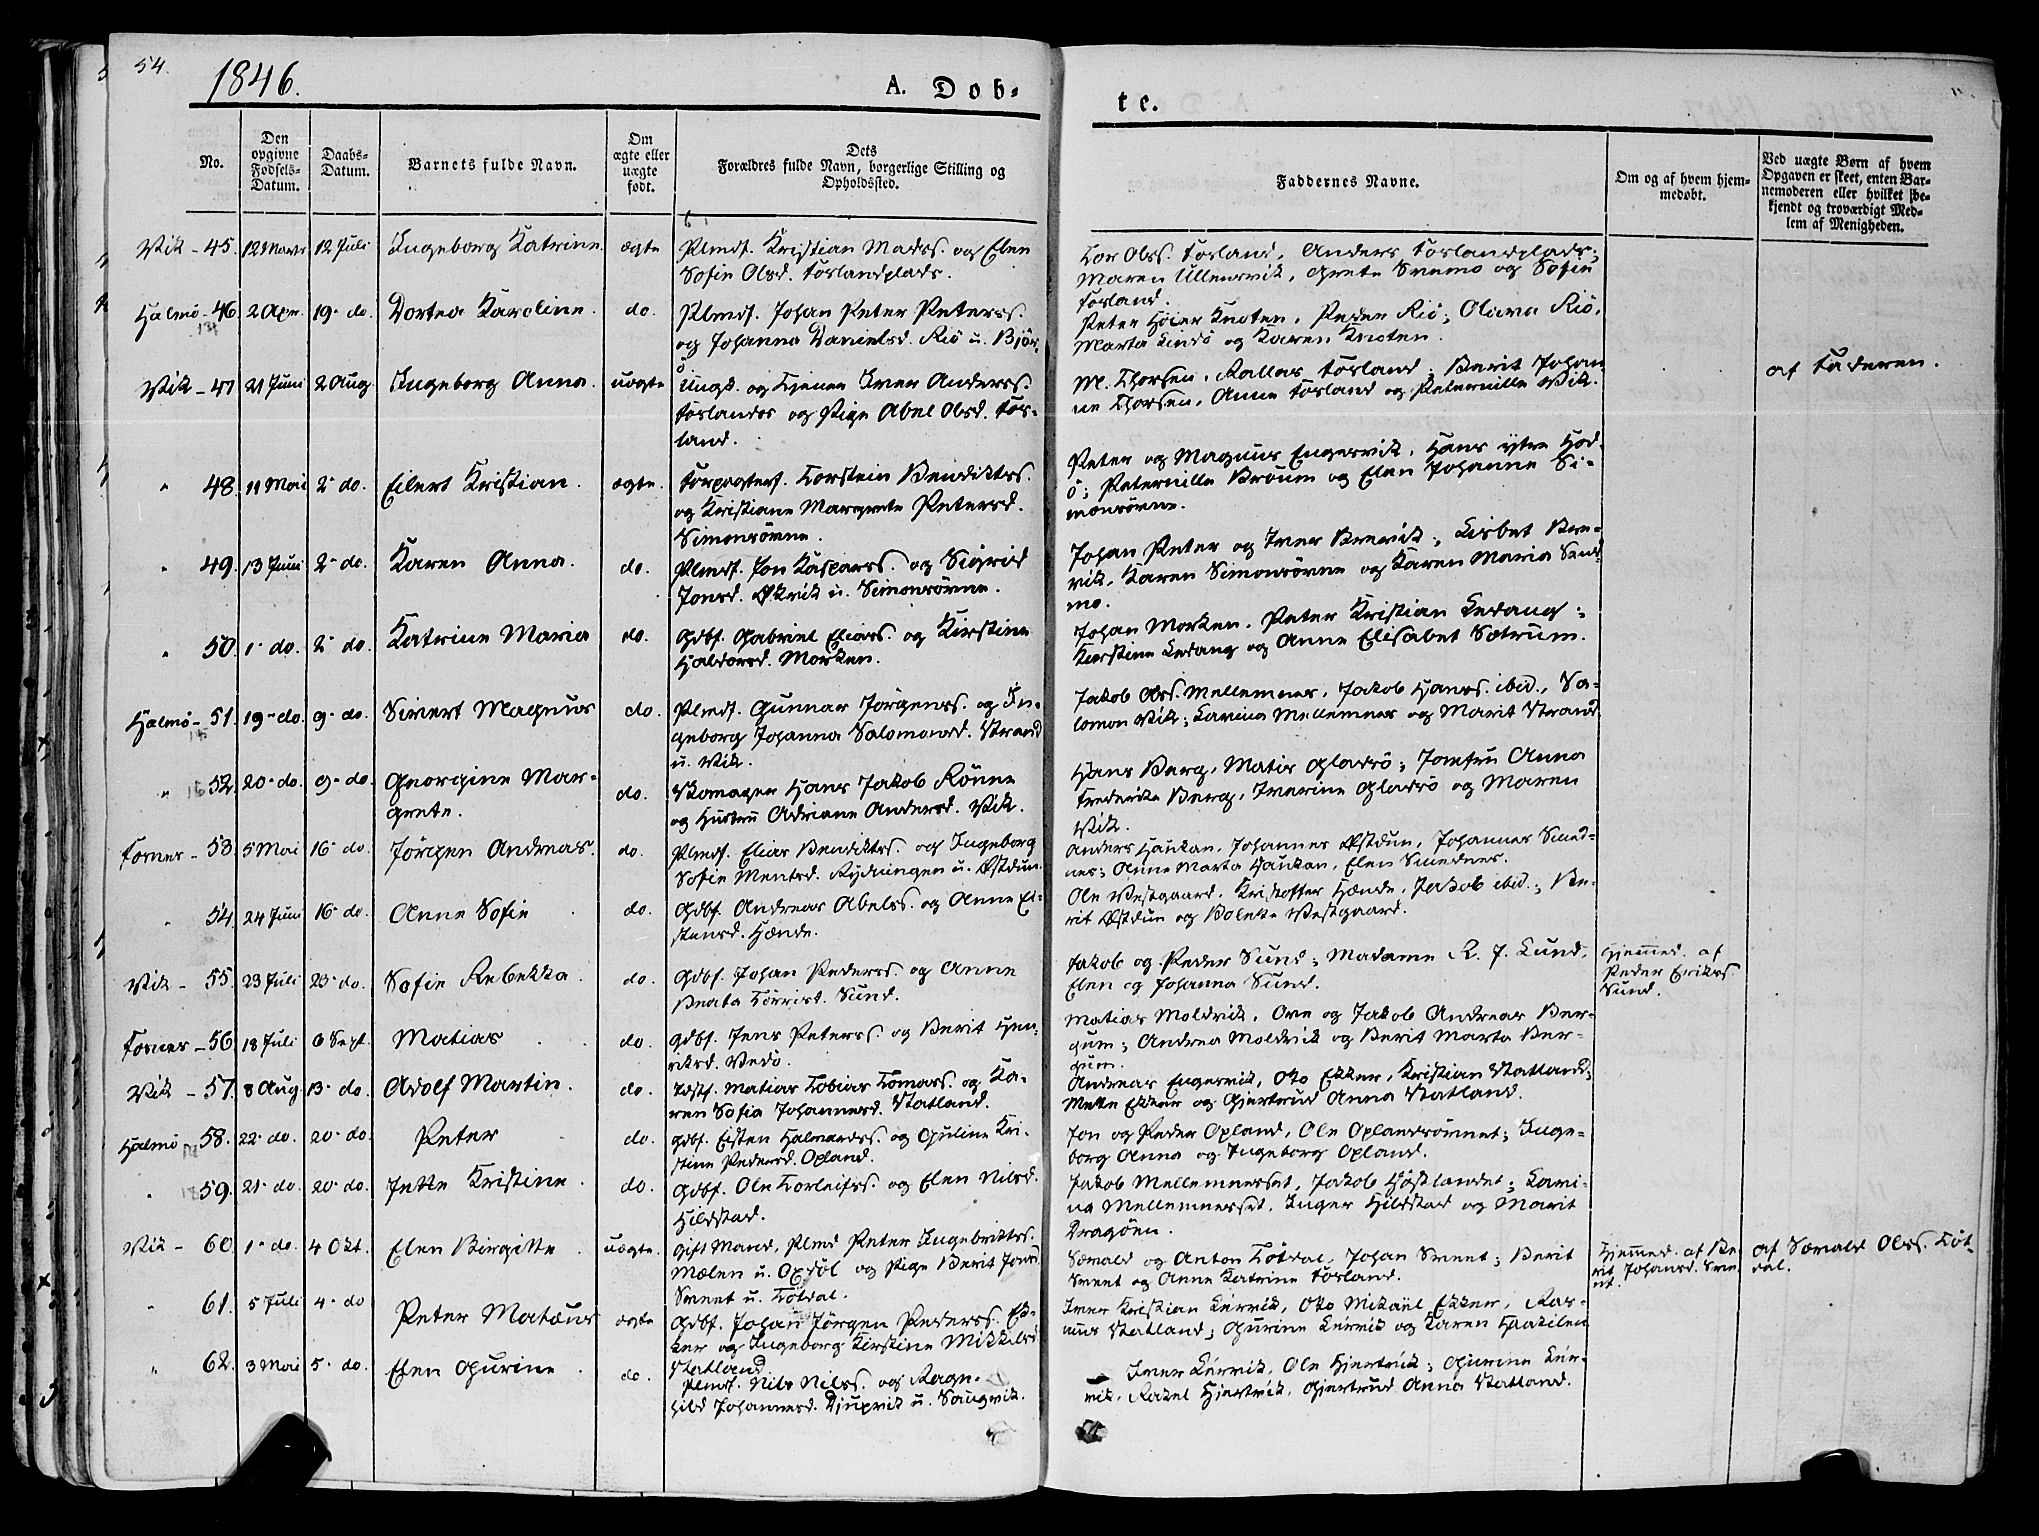 54.
1846.
A. Dob-
te.
No.
Den opgivne Fødsels-Datum.
Daabs-Datum.
Barnets fulde Navn.
Om ægte eller uægte født.
Dets Forældres fulde Navn, borgerlige Stilling og Opholdssted.
Faddernes Navne.
Om og af hvem hjem-medøbt.
Ved uægte Børn af hvem
Opgaven er skeet, enten Bar-
nemoderen eller hvilket be-
kjendt og troværdigt Med-
lem af Menigheden.
Vik - 45. 12 Marts 12 Juli Ingeborg Katrine. ægte Plmdf. Kristian Madss. og Elen
Sofie Olsd. Forlandplads.
Tor Olss. Forland, Anders Forlandplads;
Maren Ullensvik, Grete Snemo og Sofie
Forland.
Halmø - 46. 2 Apr. 19 - do. Dortea Karoline. do. Plmdf. Johan Peter Peterss.
og Johanna Danielsd. Riø u. Bjør-
ö.
Peter Høier Knoten, Peder Riø; Olava Riø,
Marta Lindö og Karen Knoten.
Vik - 47. 21 Juni 2 Aug. Ingeborg Anna. uægte Ungk. og Tjener Iver Anderss.
Forlandss og Pige Abel Olsd. For-
land.
M. Thorsen, Rallas Forland; Berit Johan-
ne Thorsen, Anne Forland og Peternille Vik.
af Faderen.
" 48. 11 Mai 2 - do. Eilert Kristian. ægte. Forpagterf. Torstein Bendiktss.
og Kristiane Margrete Petersd.
Simonsörne.
Peter og Magnus Engesvik, Hans ytre Hod-
ö; Peternille Broum og Elen Johanne Si-
monsörne.
" 49. 13 Juni 2 - do. Karen Anna. do. Plmdf. Jon Kasperss. og Sigrid
Jonsd. Økvik u. Simonsörne.
Johan Peter og Iver Brevik; Lisbet Bre-
vik, Karen Simonsörne og Karen Maria Sne-
mo.
" 50. 1 - do. 2 - do. Katrine Maria do. Gdbf. Gabriel Eliass. og Kirstine
Haldorsd. Morken.
Johan Morken, Peter Kristian Ledang;
Kirstine Ledang og Anne Elisabet Sætrum.
Halmø - 51. 19 - do. 9 - do. Sivert Magnus do. Plmdf. Gunnar Jörgenss. og In-
geborg Johanna Salomonsd. Strand
u. Vik.
Jakob Olss. Mellemnes, Jakob Hanss. ibid., Sa-
lomon Vik; Lavina Mellemnes og Marit Strand.
" 52. 20 - do. 9 - do. Georgine Mar-
grete. do. Skomager Hans Jakob Rönne
og Hustru Adriane Andersd. Vik.
Hans Berg, Matis Gladsö; Jomfru Anna
Frederika Berg, Iverine Gladsö og Maren
Vik.
Fosnes - 53. 5 Mai 16 - do. Jörgen Andreas. do. Plmdf. Elias Bendiktss. og Ingeborg
Sofie Mentsd. Rydningen u. Østdun.
Anders Haukan, Johannes Østdun, Johannes Smed-
nes; Anne Marta Haukan, Elen Smednes.
" 54. 24 Juni 16 - do. Anne Sofie do. Gdbf. Andreas Abelss. og Anne El-
stensd. Hænde.
Ole Vestgaard, Kristoffer Hænde, Jakob ibid.; Be-
rit Østdun og Bolette Vestgaard.
Vik - 55. 23 Juli 23 - do. Sofie Rebekka do. Gdbf. Johan Pederss. og Anne
Beata Torrisd. Sund.
Jakob og Peder Sund; Madame R. J. Lund,
Elen og Johanna Sund.
Hjemmed. af
Peder Erikss.
Sund.
Fosnes - 56. 18 Juli 6 Sept. Matias do. Gdbf. Jens Peterss. og Berit Hen-
riksd. Vedö.
Matias Moldvik, Ove og Jakob Andreas Ber-
gum; Andrea Moldvik og Berit Marta Ber-
gum.
Vik - 57. 8 Aug. 13 - do. Adolf Martin. do. Matias Tobias Tomass. og Ka-
ren Sofia Johannesd. Statland.
Andreas Engesvik, Oto Ekker, Kristian Statland;
Mette Ekker og Gjertrud Anna Statland.
Halmø 58. 22 - do. 20 - do. Peter do. Gdbf. Eisten Halvardss. og Guline Kri-
stine Pedersd. Opland.
Jon og Peder Opland, Ole Oplandsörnet; Inge-
borg Anna og Ingeborg Opland.
" 59. 21 - do. 20 - do. Jette Kristine. do. Gdbf. Ole Torleifss. og Elen Nilsd.
Hildstad.
Jakob Mellemnesset, Jakob Høstlandet; Lavi-
na Mellemnesset, Inger Hildstad og Marit
Dragöen.
Vik - 60. 1 - do. 4 Okt. Elen Birgitte. uægte. Gift Mand, Plmd Peter Ingebriktss.
Mælen u. Opdöl og Pige Berit Jonsd.
Sveet u. Tötdal.
Sævald og Anton Tötdal, Johan Sveet; Berit
Sveet og Anne Katrine Forland.
Hjemmed. af Be-
rit Johansd. Sve-
et.
af Sævald Olss. Töt-
dal.
" 61. 5 Juli 4 - do Peter Matæus ægte Gdbf. Johan Jörgen Pederss. Ek-
ker og Ingeborg Kirstine Mikkelsd
Statland.
Iver Kristian Lérvik, Oto Mikäel Ekker, Ras-
mus Statland; Gurine Lérvik og Karen
" 62. 3 Mai 5 - do. Elen Gurine. do. Plmdf. Nils Nilss. og Ragn-
hild Johannesd. Djupvik u. Saugvik.
Iver Lérvik, Ole Hjertvik; Gurine Lér-
vik, Rakel Hjertvik, Gjertrud Anna Statland.